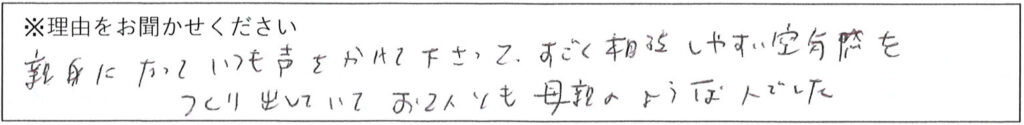 ※理由をお聞かせください
親身になって いつも声をかけて下さって、すごく相談しやすい空気感を
つくり出していて お2人とも母親のような人でした